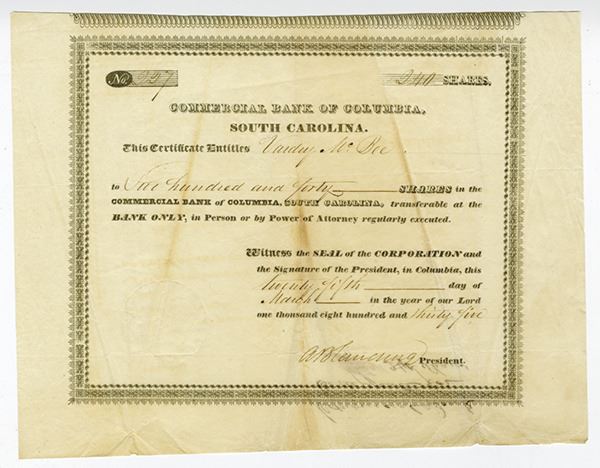 No. 227 240 SHARES.
COMMERCIAL BANK OF COLUMBIA,
SOUTH CAROLINA.
This Certificate Entitles Vardry McBee
to Two hundred and forty SHARES in the
COMMERCIAL BANK of COLUMBIA, SOUTH CAROLINA, transferable at the
BANK ONLY, in Person or by Power of Attorney regularly executed.
Witness the SEAL of the CORPORATION and
the Signature of the President, in Columbia, this
twenty fifth day of
March in the year of our Lord
one thousand eight hundred and thirty five
A Blanding President.